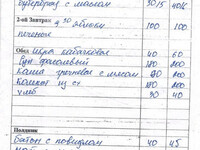 бутерброд с маслом 30/5 40/6
2-ой Завтрак яблоки 100 100
печенье
Обед Икра кабачковая 40 60
Суп фасолевый 180 200
Каша гречневая с мясом
Компот из с/ф 180 200
хлеб 30 40
Полдник
Батон с повидлом 40 45